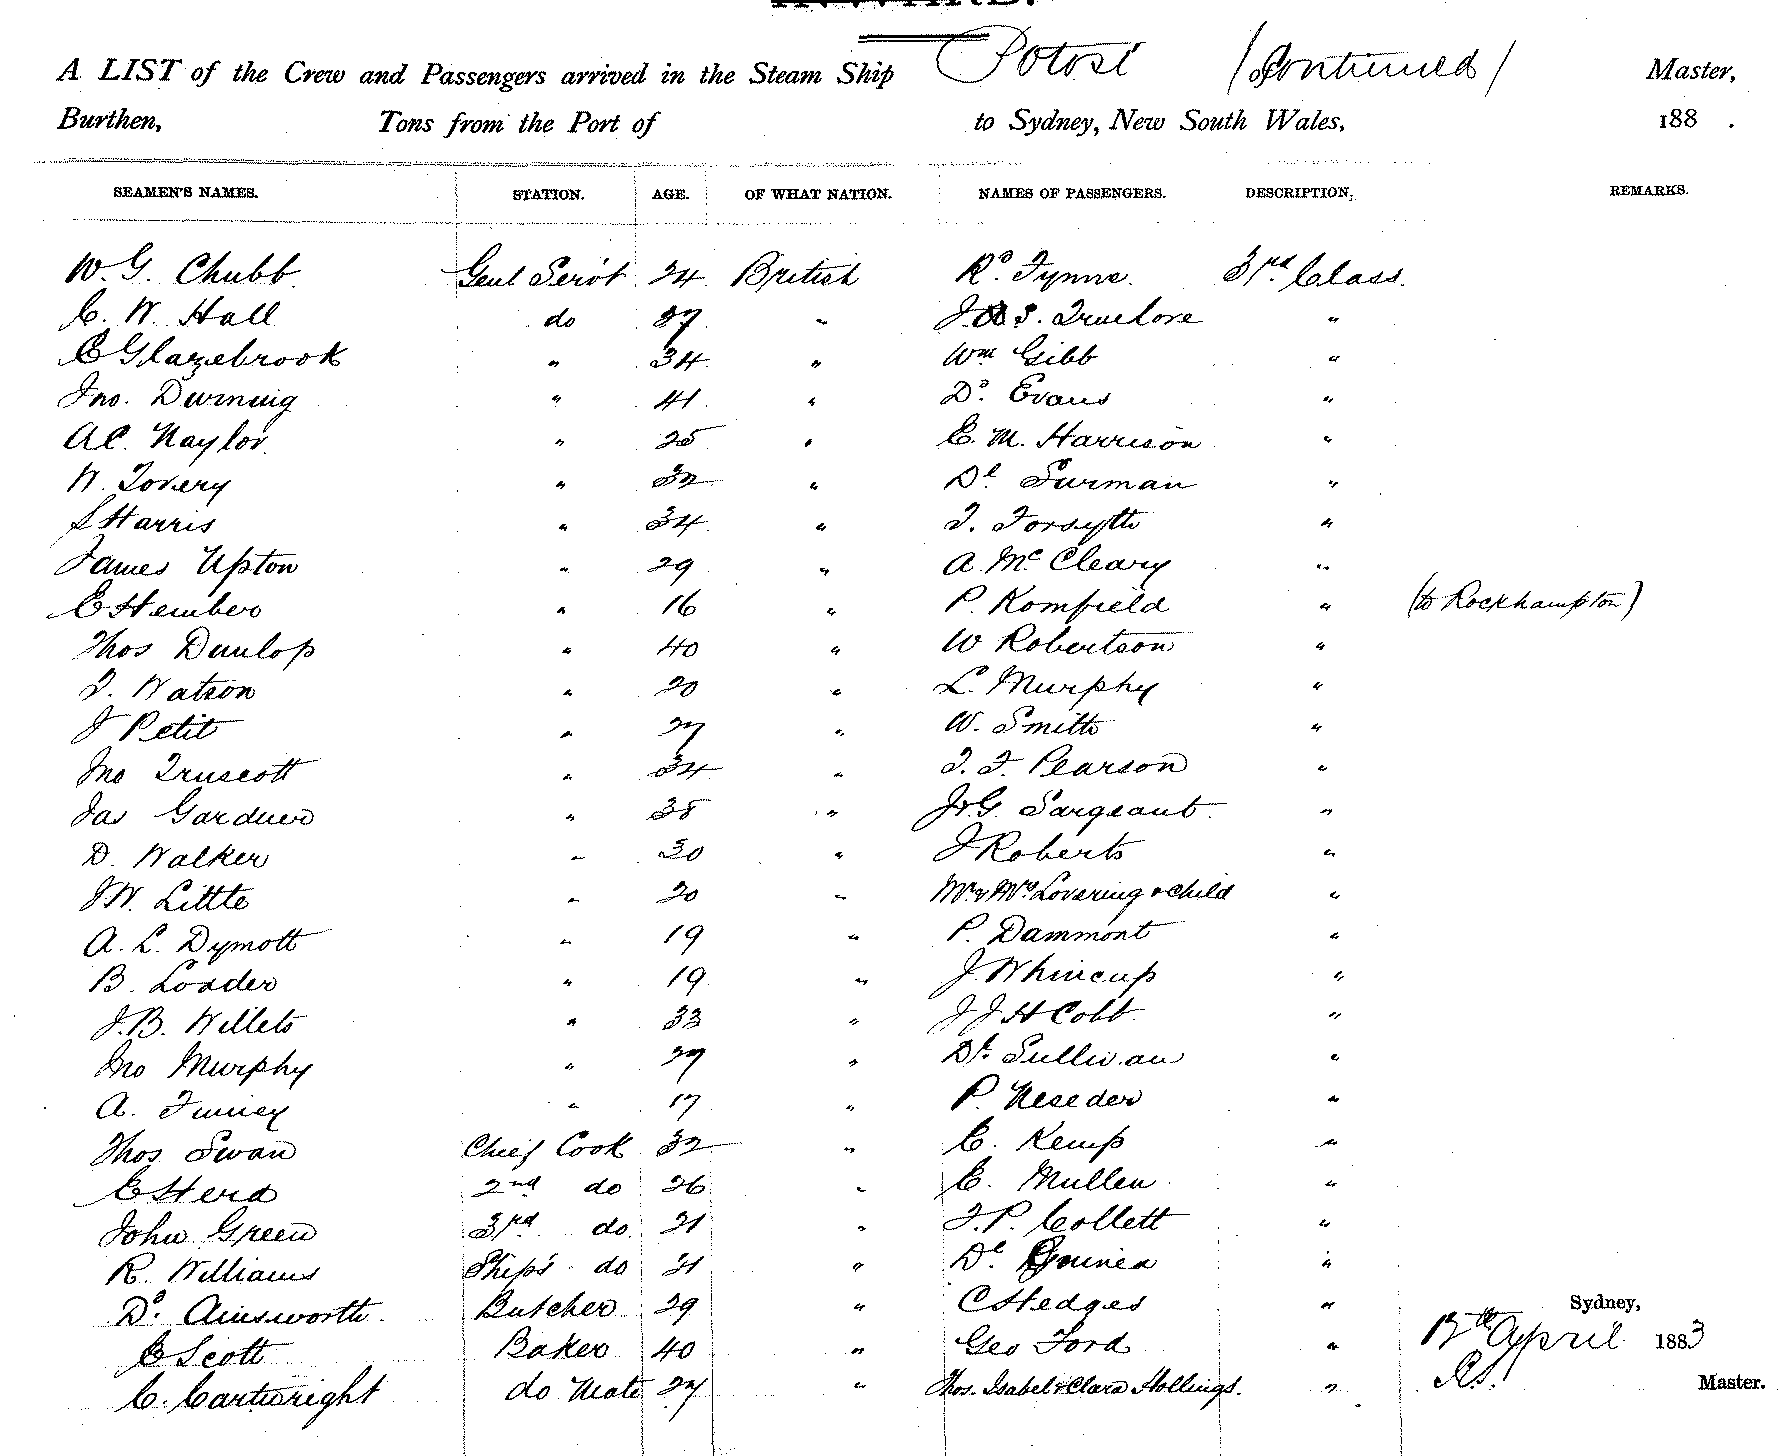 A LIST of the Crew and Passengers arrived in the Steam Ship Potosi (Continued) Master,
Burthen, Tons from the Port of to Sydney, New South Wales, 188 .
SEAMEN'S NAMES. STATION. AGE. OF WHAT NATION. NAMES OF PASSENGERS. DESCRIPTION. REMARKS.
W. G. Chubb Genl Servt 24 British Rd. Tynne. 3rd Class.
C. W. Hall do 27 " J. S. Truelove "
C Glazebrook " 34 " Wm Gibb "
Jno. Durning " 41 " Dd. Evans "
A C. Naylor " 25 " C. M. Harrison "
W. Tovery " 32 " Dl Surman "
S Harris " 34 " T. Forsyth "
James Upton " 29 " A. McCleary "
E Hember " 16 " P. Komfield " (to Rockhampton)
Thos Dunlop " 40 " W Robertson "
T. Watson " 20 " L. Murphy "
J Petit " 27 " W. Smith "
Jno Truscott " 34 " T. F. Pearson "
Jas Gardner " 38 " J. G. Sargeant. "
D. Walker " 30 " J Roberts "
J W. Little " 20 " Mr & Mrs Lovering & Child "
A. L. Dymott " 19 " P. Dammont "
B. Loader " 19 " J. Whincup "
J. B. Willets " 33 " J J H Cobb "
Jno Murphy " 27 " Dl. Sullivan "
A. Finney " 17 " P. Neseder "
Thos Swan Chief Cook 32 " C. Kemp "
C Herd 2nd do 26 " C. Mullen "
John Green 3rd do 21 " J. P. Collett "
R. Williams Ship's do 21 " Dl. "
Dd. Ainsworth Butcher 29 " C Hedges "
C Scott Baker 40 " Geo Ford "
Sydney,
April 1883
C. Cartwright do Mate 27 " Thos. Isabel & Clara Hollings. "
Master.